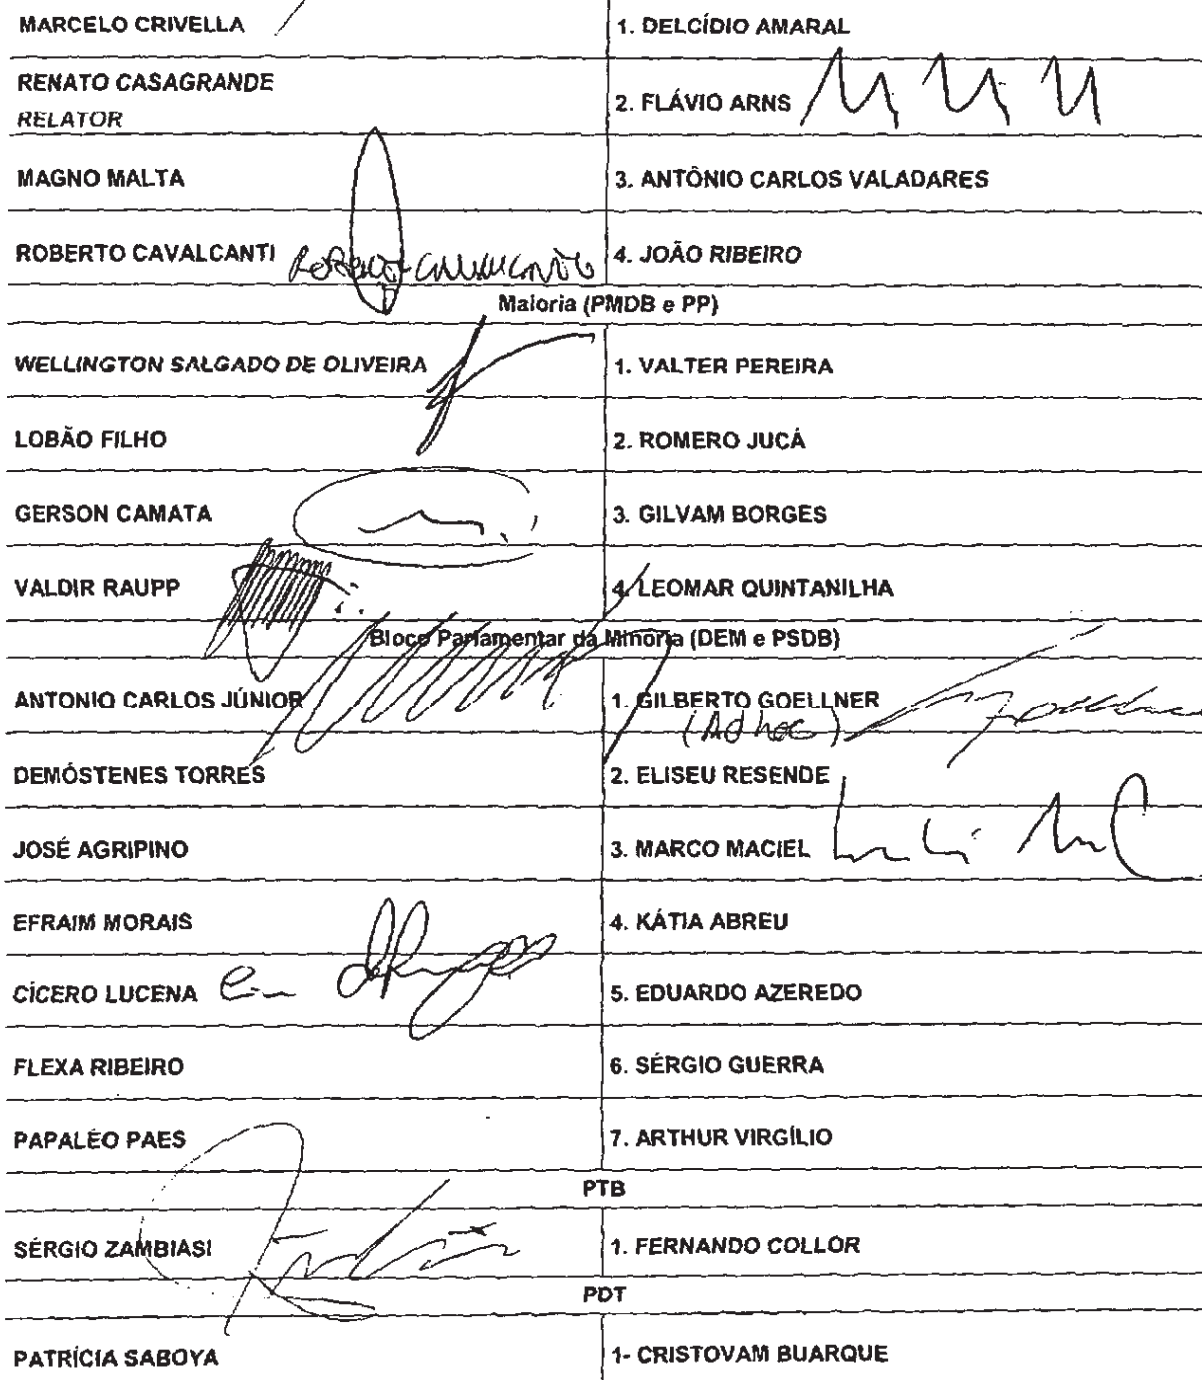 MARCELO CRIVELLA
1. DELCÍDIO AMARAL
RENATO CASAGRANDE
RELATOR
2. FLÁVIO ARNS
MAGNO MALTA
3. ANTÔNIO CARLOS VALADARES
ROBERTO CAVALCANTI Roberto Cavalcanti
4. JOÃO RIBEIRO
Maioria (PMDB e PP)
WELLINGTON SALGADO DE OLIVEIRA
1. VALTER PEREIRA
LOBÃO FILHO
2. ROMERO JUCÁ
GERSON CAMATA
3. GILVAM BORGES
VALDIR RAUPP
4. LEOMAR QUINTANILHA
Bloco Parlamentar da Minoria (DEM e PSDB)
ANTONIO CARLOS JÚNIOR
1. GILBERTO GOELLNER
(Ad hoc)
DEMÓSTENES TORRES
2. ELISEU RESENDE
JOSÉ AGRIPINO
3. MARCO MACIEL
EFRAIM MORAIS
4. KÁTIA ABREU
CÍCERO LUCENA
5. EDUARDO AZEREDO
FLEXA RIBEIRO
6. SÉRGIO GUERRA
PAPALÉO PAES
7. ARTHUR VIRGÍLIO
PTB
SÉRGIO ZAMBIASI
1. FERNANDO COLLOR
PDT
PATRÍCIA SABOYA
1- CRISTOVAM BUARQUE